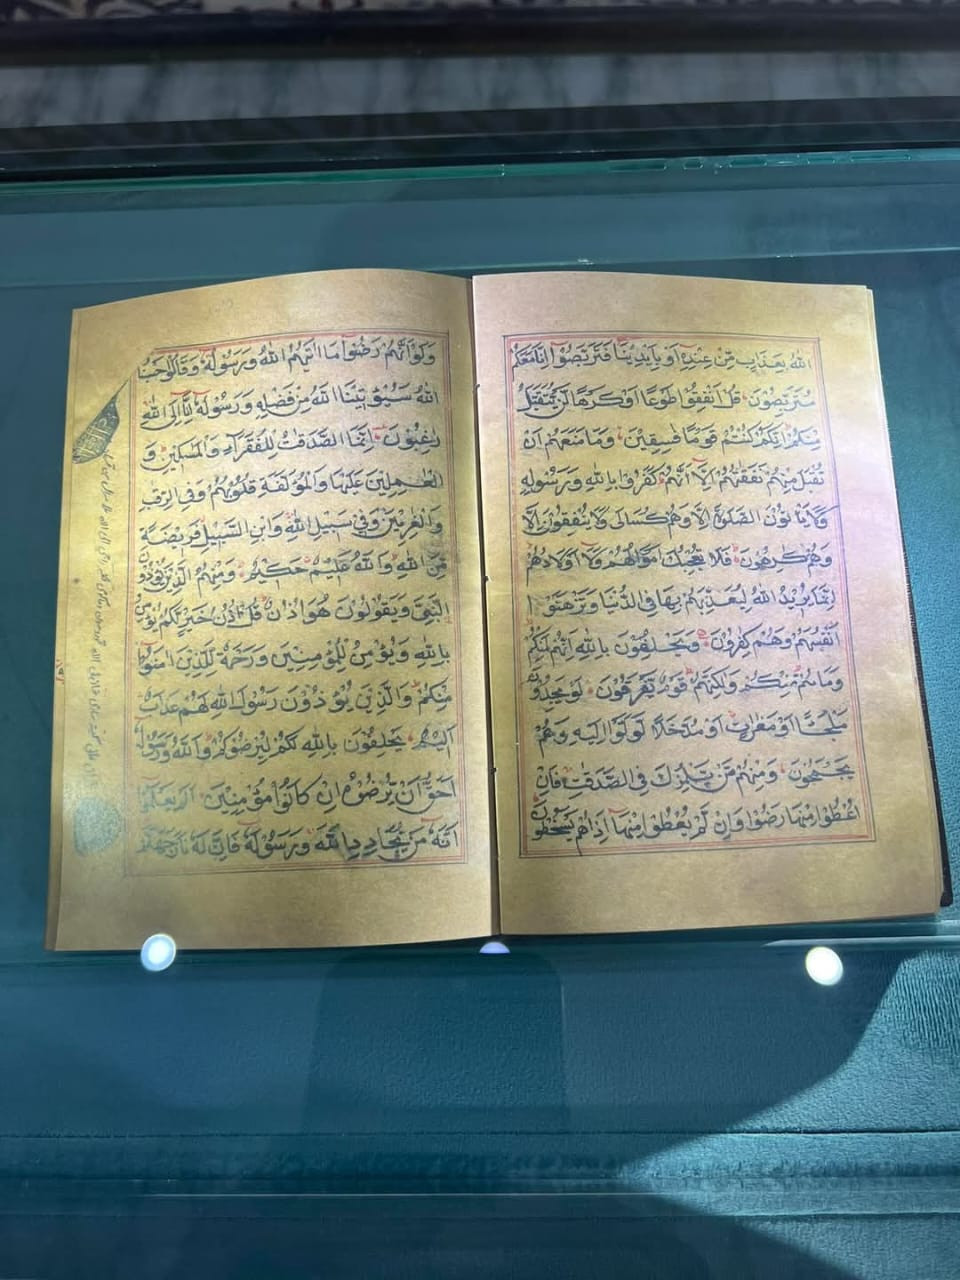 الله بِعَذَابٍ مِّنْ عِنْدِهِ اَوْ بِاَيْدِيْنَا فَتَرَبَّصُوْٓا اِنَّا مَعَكُمْ
مُّتَرَبِّصُوْنَ قُلْ اَنْفِقُوْا طَوْعًا اَوْ كَرْهًا لَّنْ يُّتَقَبَّلَ
مِنْكُمْ اِنَّكُمْ كُنْتُمْ قَوْمًا فٰسِقِيْنَ وَمَا مَنَعَهُمْ اَنْ
تُقْبَلَ مِنْهُمْ نَفَقٰتُهُمْ اِلَّآ اَنَّهُمْ كَفَرُوْا بِاللهِ وَبِرَسُوْلِهِ
وَلَا يَاْتُوْنَ الصَّلٰوةَ اِلَّا وَهُمْ كُسَالٰى وَلَا يُنْفِقُوْنَ اِلَّا
وَهُمْ كٰرِهُوْنَ فَلَا تُعْجِبْكَ اَمْوَالُهُمْ وَلَآ اَوْلَادُهُمْ
اِنَّمَا يُرِيْدُ اللهُ لِيُعَذِّبَهُمْ بِهَا فِي الدُّنْيَا وَتَزْهَقَ
اَنْفُسُهُمْ وَهُمْ كٰفِرُوْنَ وَيَحْلِفُوْنَ بِاللهِ اِنَّهُمْ لَمِنْكُمْ
وَمَا هُمْ مِّنْكُمْ وَلٰكِنَّهُمْ قَوْمٌ يَّفْرَقُوْنَ لَوْ يَجِدُوْنَ
مَلْجَـًٔا اَوْ مَغٰرٰتٍ اَوْ مُدَّخَلًا لَّوَلَّوْا اِلَيْهِ وَهُمْ
يَجْمَحُوْنَ وَمِنْهُمْ مَّنْ يَّلْمِزُكَ فِي الصَّدَقٰتِ فَاِنْ
اُعْطُوْا مِنْهَا رَضُوْا وَاِنْ لَّمْ يُعْطَوْا مِنْهَآ اِذَا هُمْ يَسْخَطُوْنَ
وَلَوْ اَنَّهُمْ رَضُوْا مَآ اٰتٰىهُمُ اللهُ وَرَسُوْلُهٗ وَقَالُوْا حَسْبُنَا
اللهُ سَيُؤْتِيْنَا اللهُ مِنْ فَضْلِهٖ وَرَسُوْلُهٗٓ اِنَّآ اِلَى اللهِ
رٰغِبُوْنَ اِنَّمَا الصَّدَقٰتُ لِلْفُقَرَآءِ وَالْمَسٰكِيْنِ وَ
الْعٰمِلِيْنَ عَلَيْهَا وَالْمُؤَلَّفَةِ قُلُوْبُهُمْ وَفِي الرِّقَابِ
وَالْغٰرِمِيْنَ وَفِيْ سَبِيْلِ اللهِ وَابْنِ السَّبِيْلِ فَرِيْضَةً
مِّنَ اللهِ وَاللهُ عَلِيْمٌ حَكِيْمٌ وَمِنْهُمُ الَّذِيْنَ يُؤْذُوْنَ
النَّبِيَّ وَيَقُوْلُوْنَ هُوَ اُذُنٌ قُلْ اُذُنُ خَيْرٍ لَّكُمْ يُؤْمِنُ
بِاللهِ وَيُؤْمِنُ لِلْمُؤْمِنِيْنَ وَرَحْمَةٌ لِّلَّذِيْنَ اٰمَنُوْا
مِنْكُمْ وَالَّذِيْنَ يُؤْذُوْنَ رَسُوْلَ اللهِ لَهُمْ عَذَابٌ
اَلِيْمٌ يَحْلِفُوْنَ بِاللهِ لَكُمْ لِيُرْضُوْكُمْ وَاللهُ وَرَسُوْلُهٗٓ
اَحَقُّ اَنْ يُّرْضُوْهُ اِنْ كَانُوْا مُؤْمِنِيْنَ اَلَمْ يَعْلَمُوْٓا
اَنَّهٗ مَنْ يُّحَادِدِ اللهَ وَرَسُوْلَهٗ فَاَنَّ لَهٗ نَارَ جَهَنَّمَ